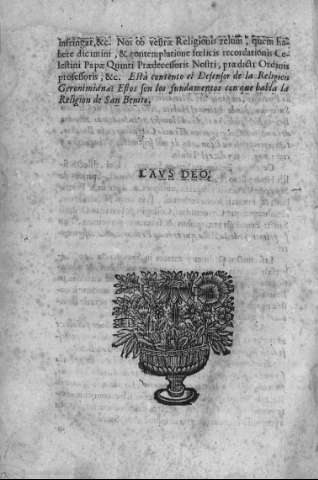 infringat, &c. Nos ob vestræ Religionis zelum, quem ha-
bere dicimini, & contemplatione fœlicis recordationis Ce-
lestini Papæ Quinti Prædecessoris Nostri, prædicti Ordinis
professoris, &c. Està contento el Defensor de la Religion
Geronimiana? Estos son los fundamentos con que habla la
Religion de San Benito.
LAVS DEO.